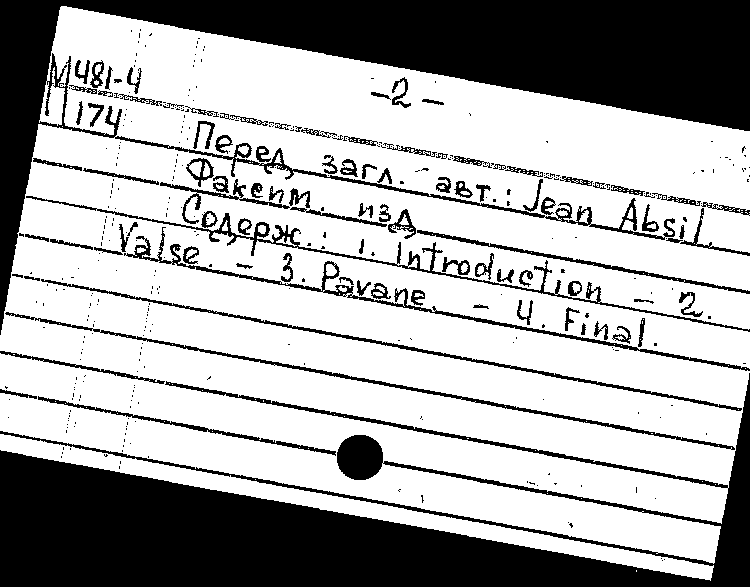 М 481-4
174
-2-
Перед загл. авт.: Jean Absil.
Факсим. изд.
Содерж.: 1. Introduction - 2.
Valse. - 3. Pavane. - 4. Final.